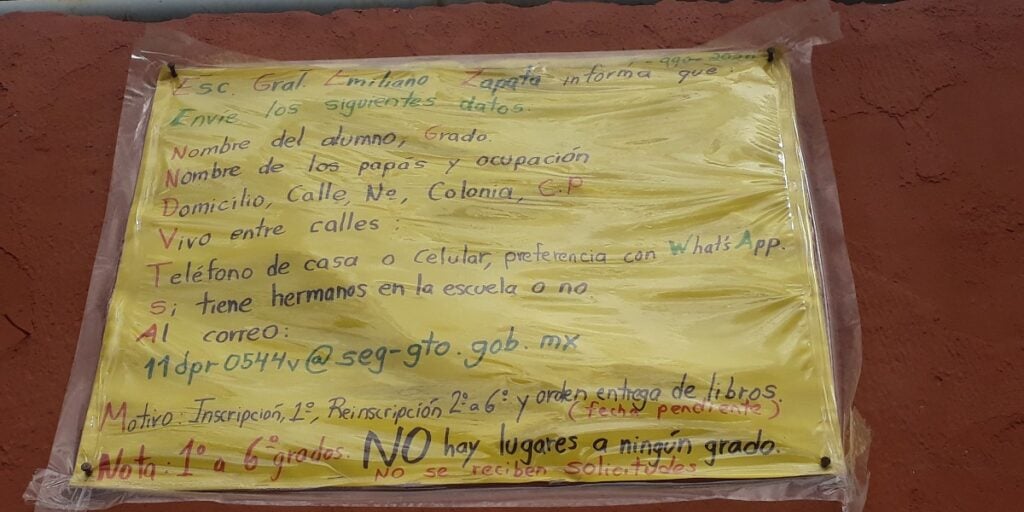 Esc. Gral. Emiliano Zapata informa que
Envíe los siguientes datos.
Nombre del alumno, Grado.
Nombre de los papás y ocupación
Domicilio, Calle, Nº, Colonia, C.P
Vivo entre calles:
Teléfono de casa o celular, preferencia con What's App.
Si tiene hermanos en la escuela o no
Al correo:
11dpr0544v@seg-gto.gob.mx
Motivo: Inscripción, 1º, Reinscripción 2º a 6º y orden entrega de libros.
(fecha pendiente)
Nota: 1º a 6º grados. NO hay lugares a ningún grado.
No se reciben solicitudes